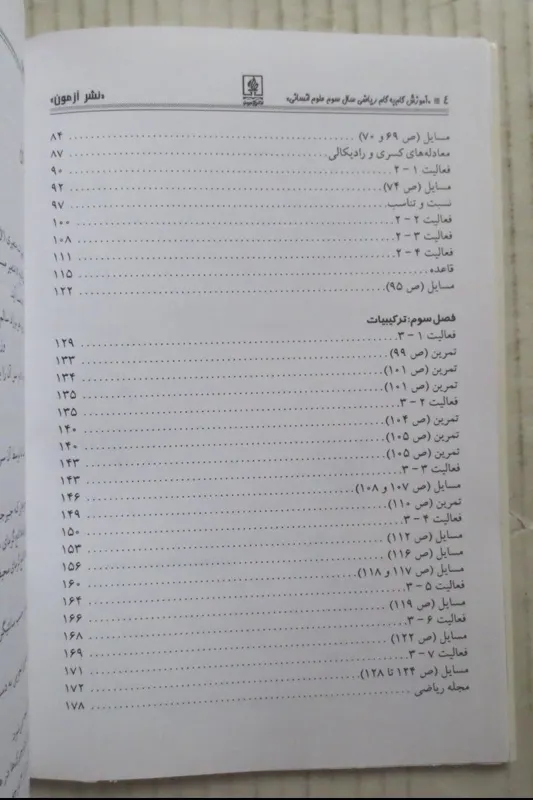 ۴ «آموزش گام به گام ریاضی سال سوم علوم انسانی» «نشر آزمون»
مسایل (ص ۶۹ و ۷۰) ۸۴
معادله‌های کسری و رادیکالی ۸۷
فعالیت ۱ – ۲ ۹۰
مسایل (ص ۷۴) ۹۲
نسبت و تناسب ۹۷
فعالیت ۲ – ۲ ۱۰۰
فعالیت ۳ – ۲ ۱۰۸
فعالیت ۴ – ۲ ۱۱۱
قاعده ۱۱۵
مسایل (ص ۹۵) ۱۲۲
فصل سوم: ترکیبیات
فعالیت ۱ – ۳ ۱۲۹
تمرین (ص ۹۹) ۱۳۳
تمرین (ص ۱۰۱) ۱۳۴
تمرین (ص ۱۰۱) ۱۳۵
فعالیت ۲ – ۳ ۱۳۵
تمرین (ص ۱۰۴) ۱۴۰
تمرین (ص ۱۰۵) ۱۴۰
تمرین (ص ۱۰۵) ۱۴۳
فعالیت ۳ – ۳ ۱۴۳
مسایل (ص ۱۰۷ و ۱۰۸) ۱۴۶
تمرین (ص ۱۱۰) ۱۴۹
فعالیت ۴ – ۳ ۱۵۰
مسایل (ص ۱۱۲) ۱۵۳
مسایل (ص ۱۱۶) ۱۵۶
مسایل (ص ۱۱۷ و ۱۱۸) ۱۶۰
فعالیت ۵ – ۳ ۱۶۴
مسایل (ص ۱۱۹) ۱۶۶
فعالیت ۶ – ۳ ۱۶۸
مسایل (ص ۱۲۲) ۱۶۹
فعالیت ۷ – ۳ ۱۷۱
مسایل (ص ۱۲۴ تا ۱۲۸) ۱۷۲
مجله ریاضی ۱۷۸